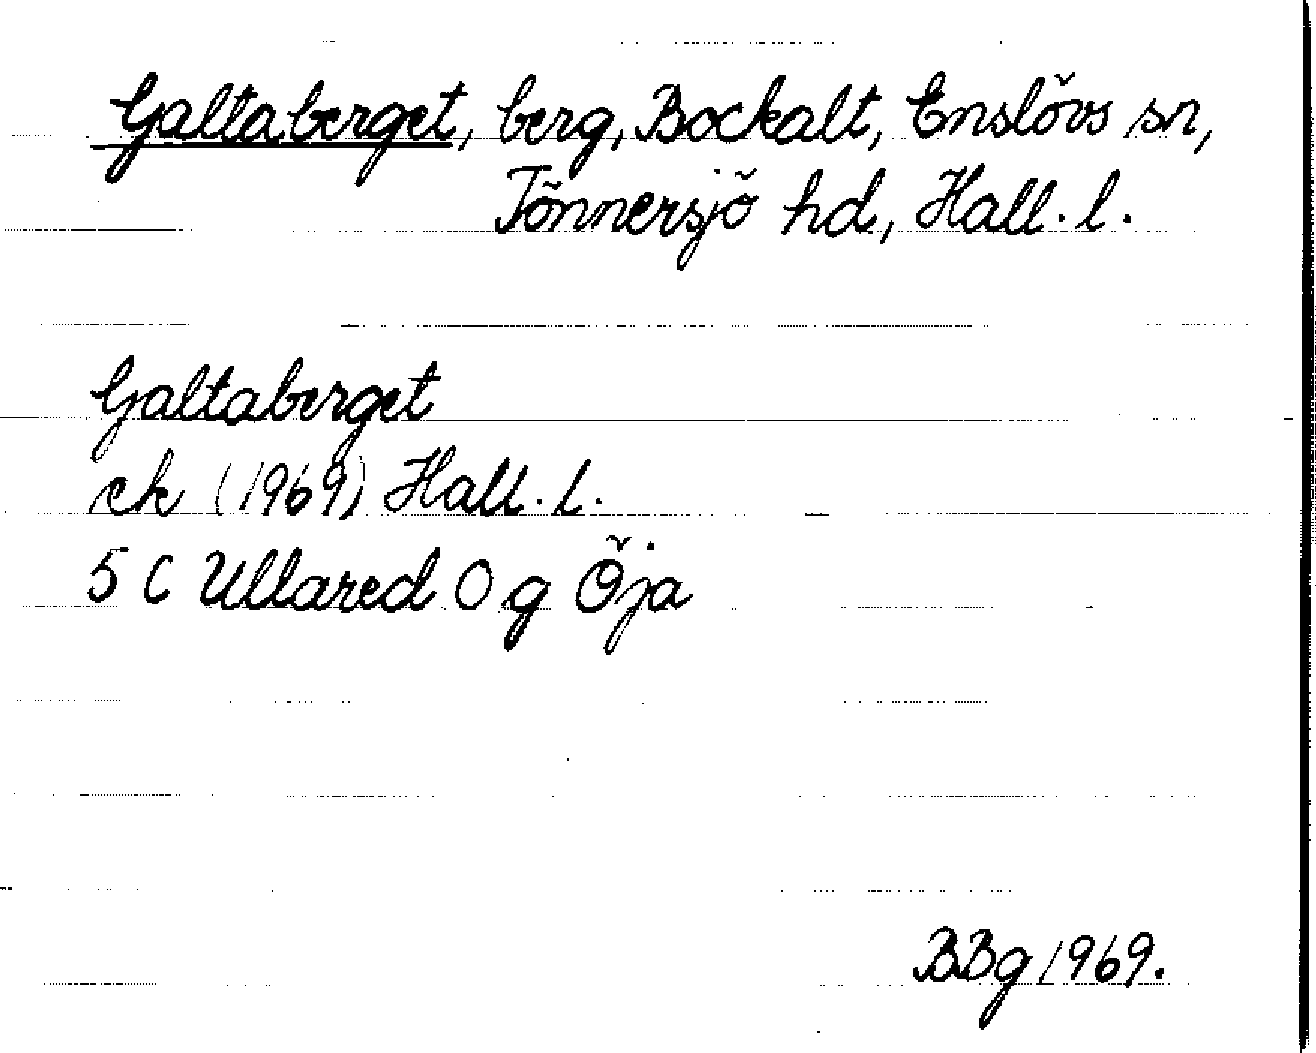 Galtaberget, berg, Bockalt, Enslövs sn,
Tönnersjö hd, Hall. l.
Galtaberget
ek (1969) Hall. l.
5 C Ullared 0 g Öja
BBg 1969.